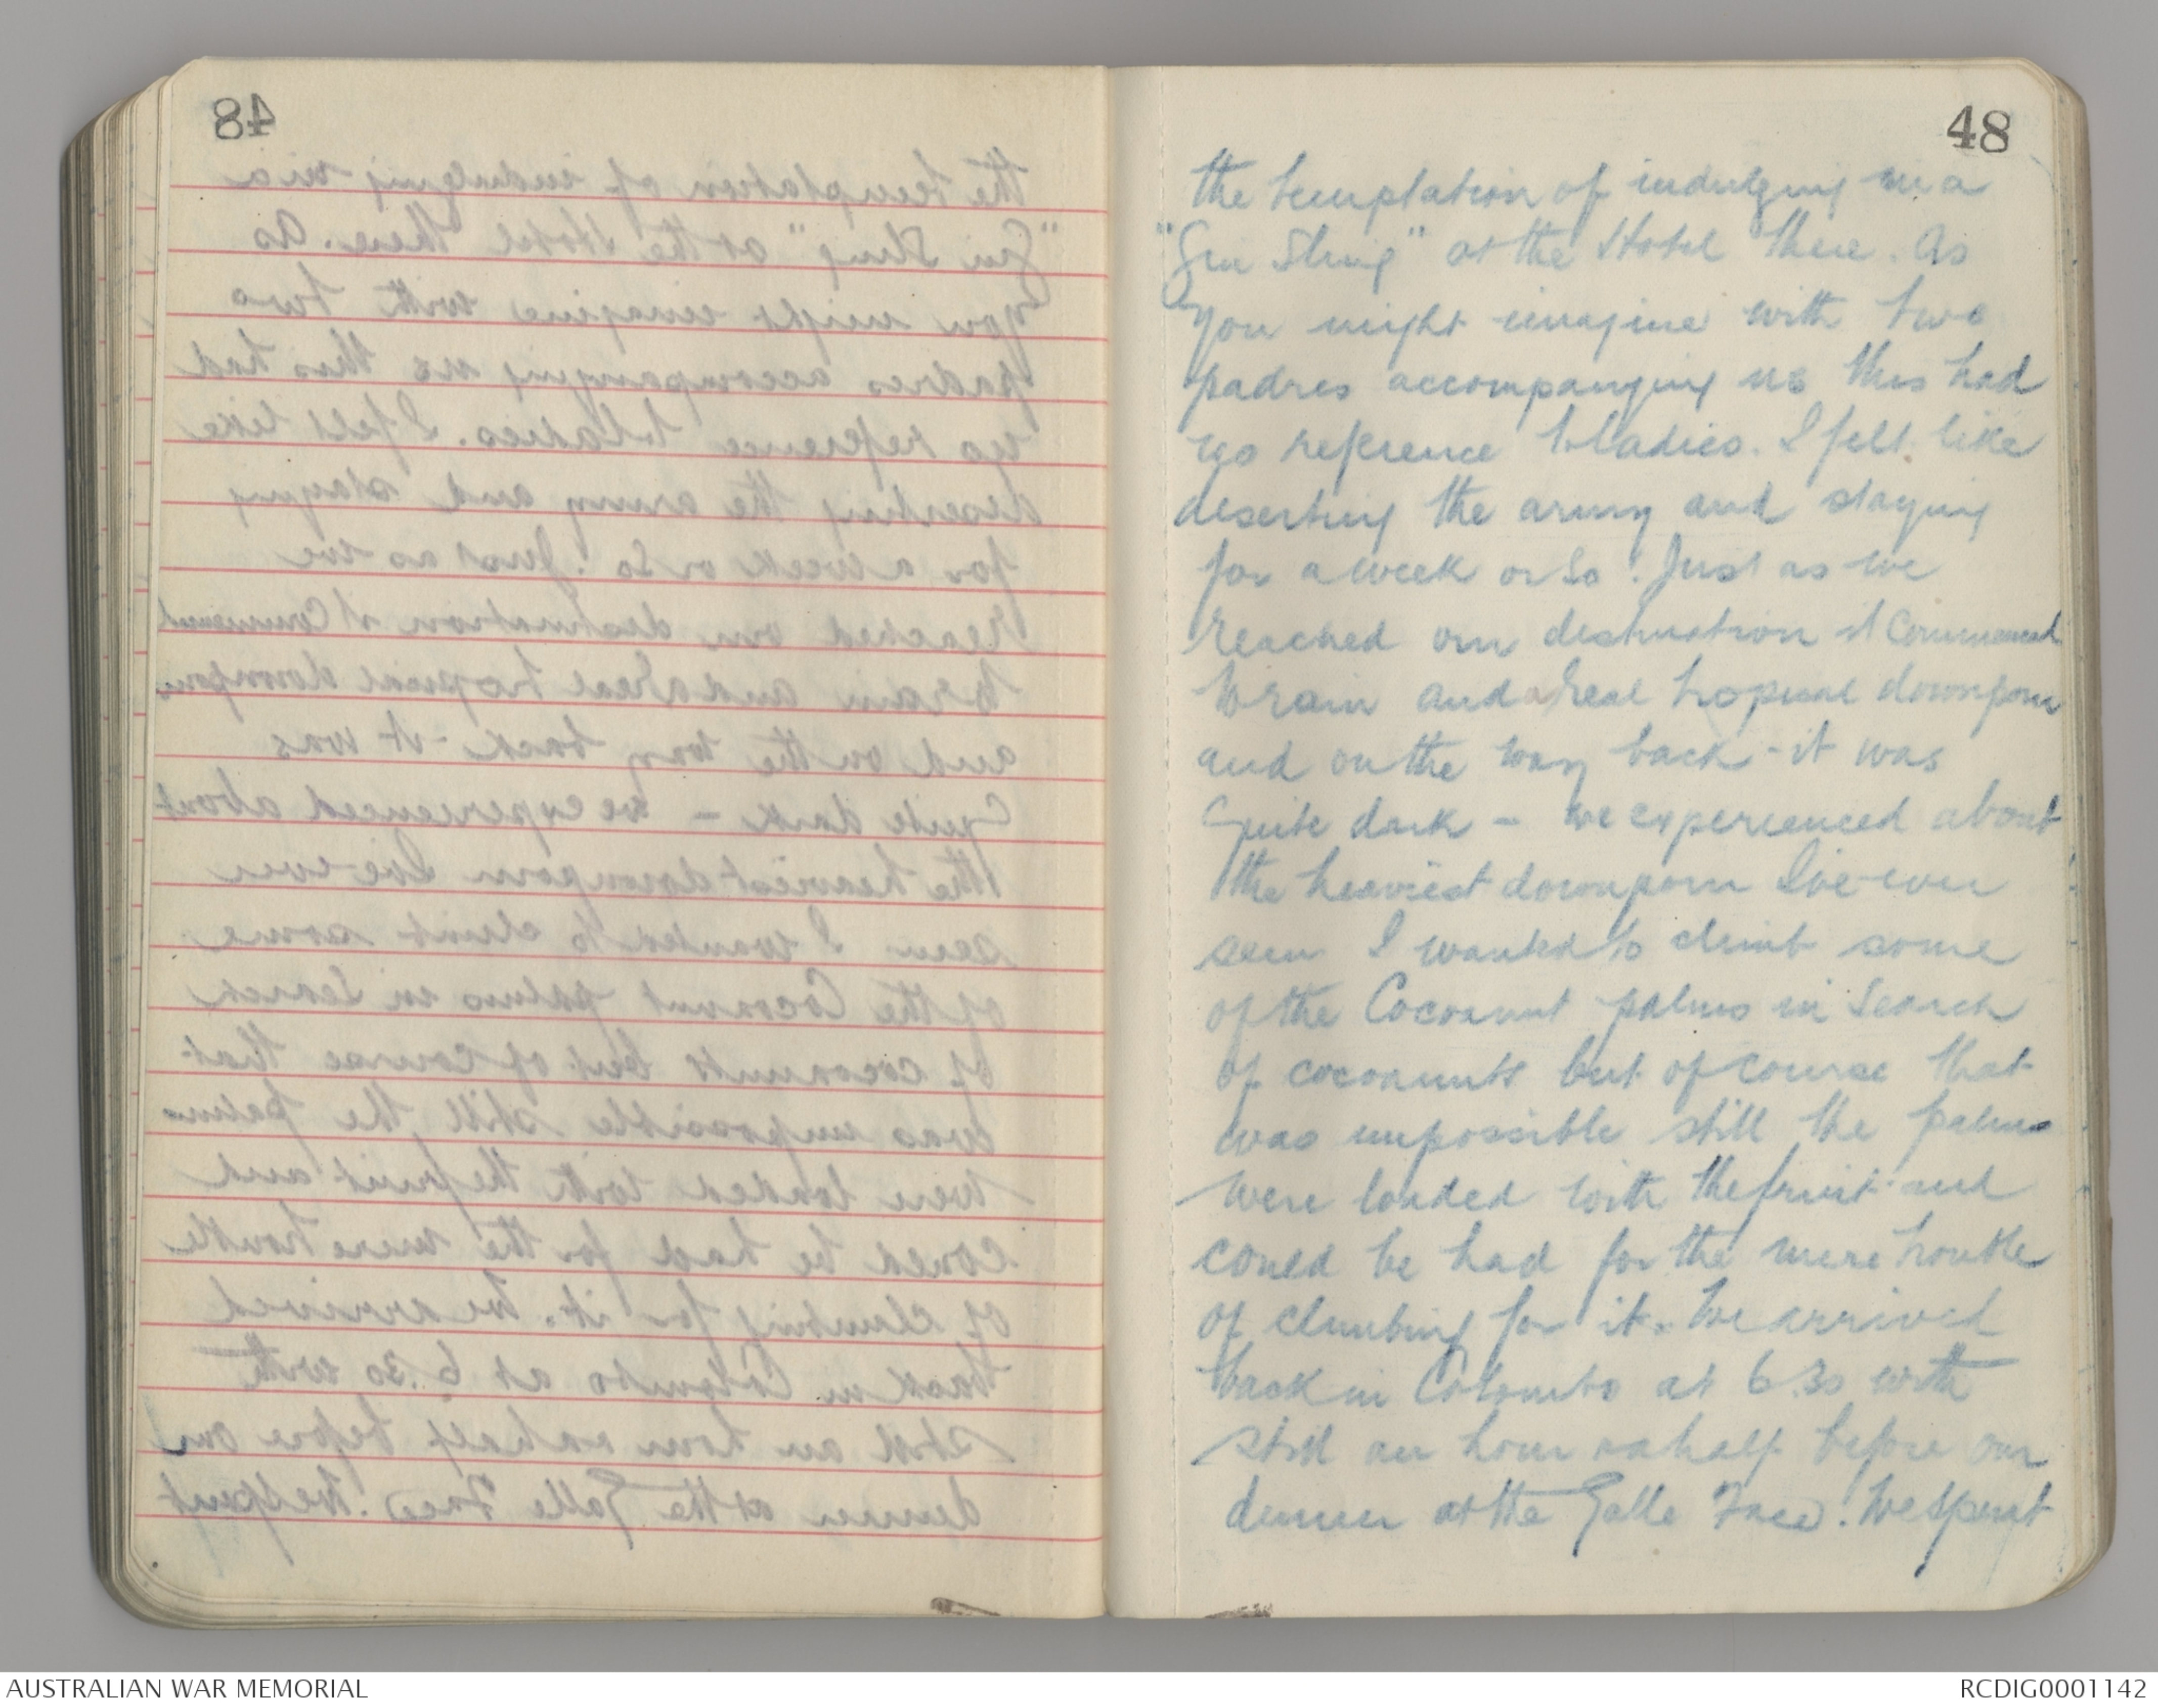 48
the temptation of indulging in a
"Gin Sling" at the Hotel there. As
you might imagine with two
padres accompanying us this had
no reference to ladies. I felt like
deserting the army and staying
for a week or so! Just as we
reached our destination it commenced
to rain and a real tropical downpour
and on the way back - it was
quite dark - we experienced about
the heaviest downpour I've ever
seen I wanted to climb some
of the Cocoanut palms in search
of cocoanuts but of course that
was impossible still the palms
were loaded with the fruit and
could be had for the mere trouble
of climbing for it. We arrived
back in Colombo at 6.30 with
still an hour & a half before our
dinner at the Galle Face. We spent
AUSTRALIAN WAR MEMORIAL
RCDIG0001142